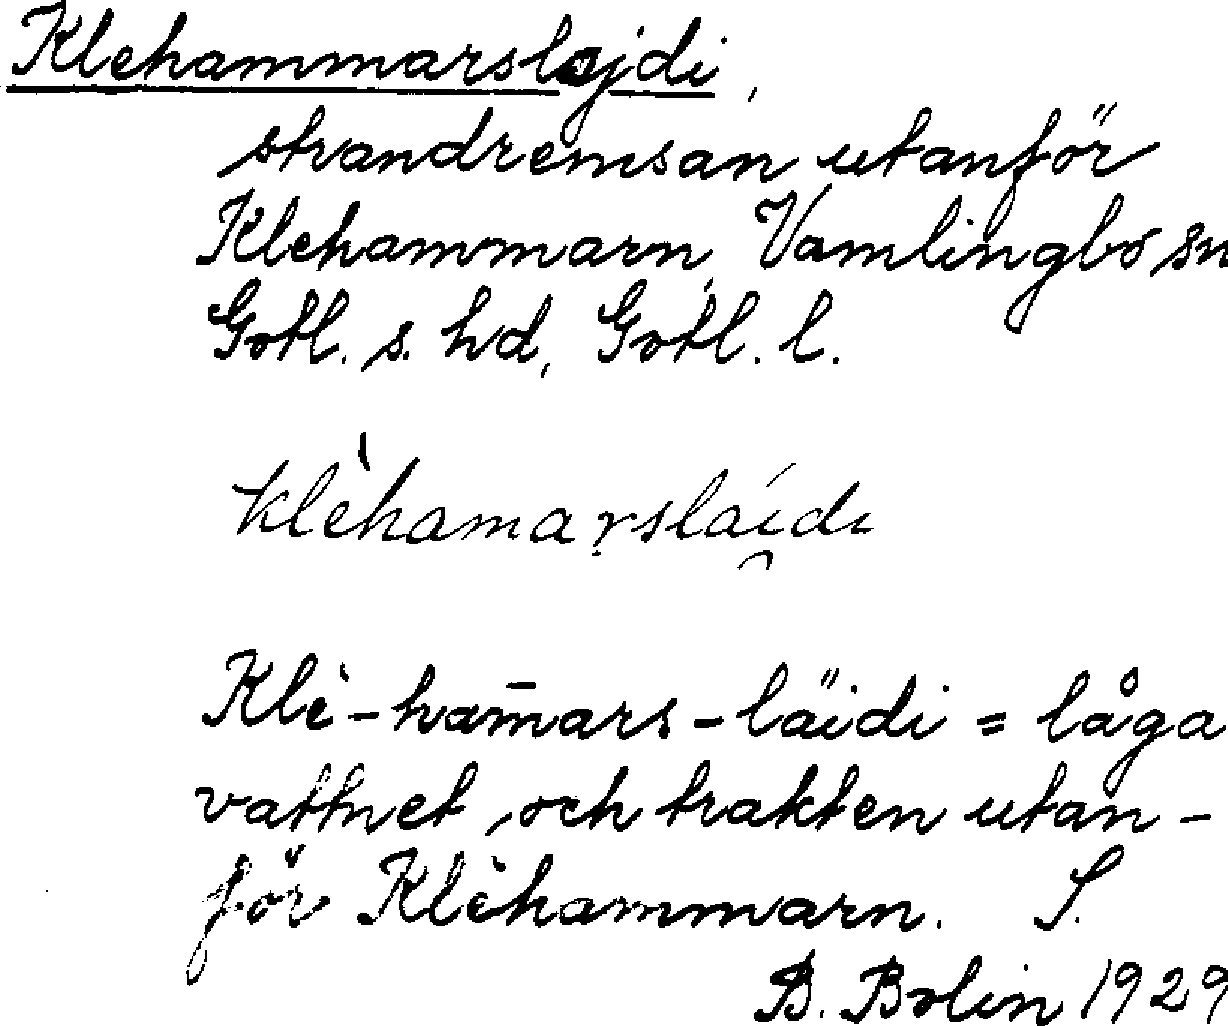 Klehammarslajdi,
strandremsan utanför
Klehammarn, Vamlingbo sn
Gotl. s. hd, Gotl. l.
klèhamarsláidi
Klè-ham̄ars-läidi = låga
vattnet, och trakten utan-
för Klèhammarn. S.
B. Bolin 1929